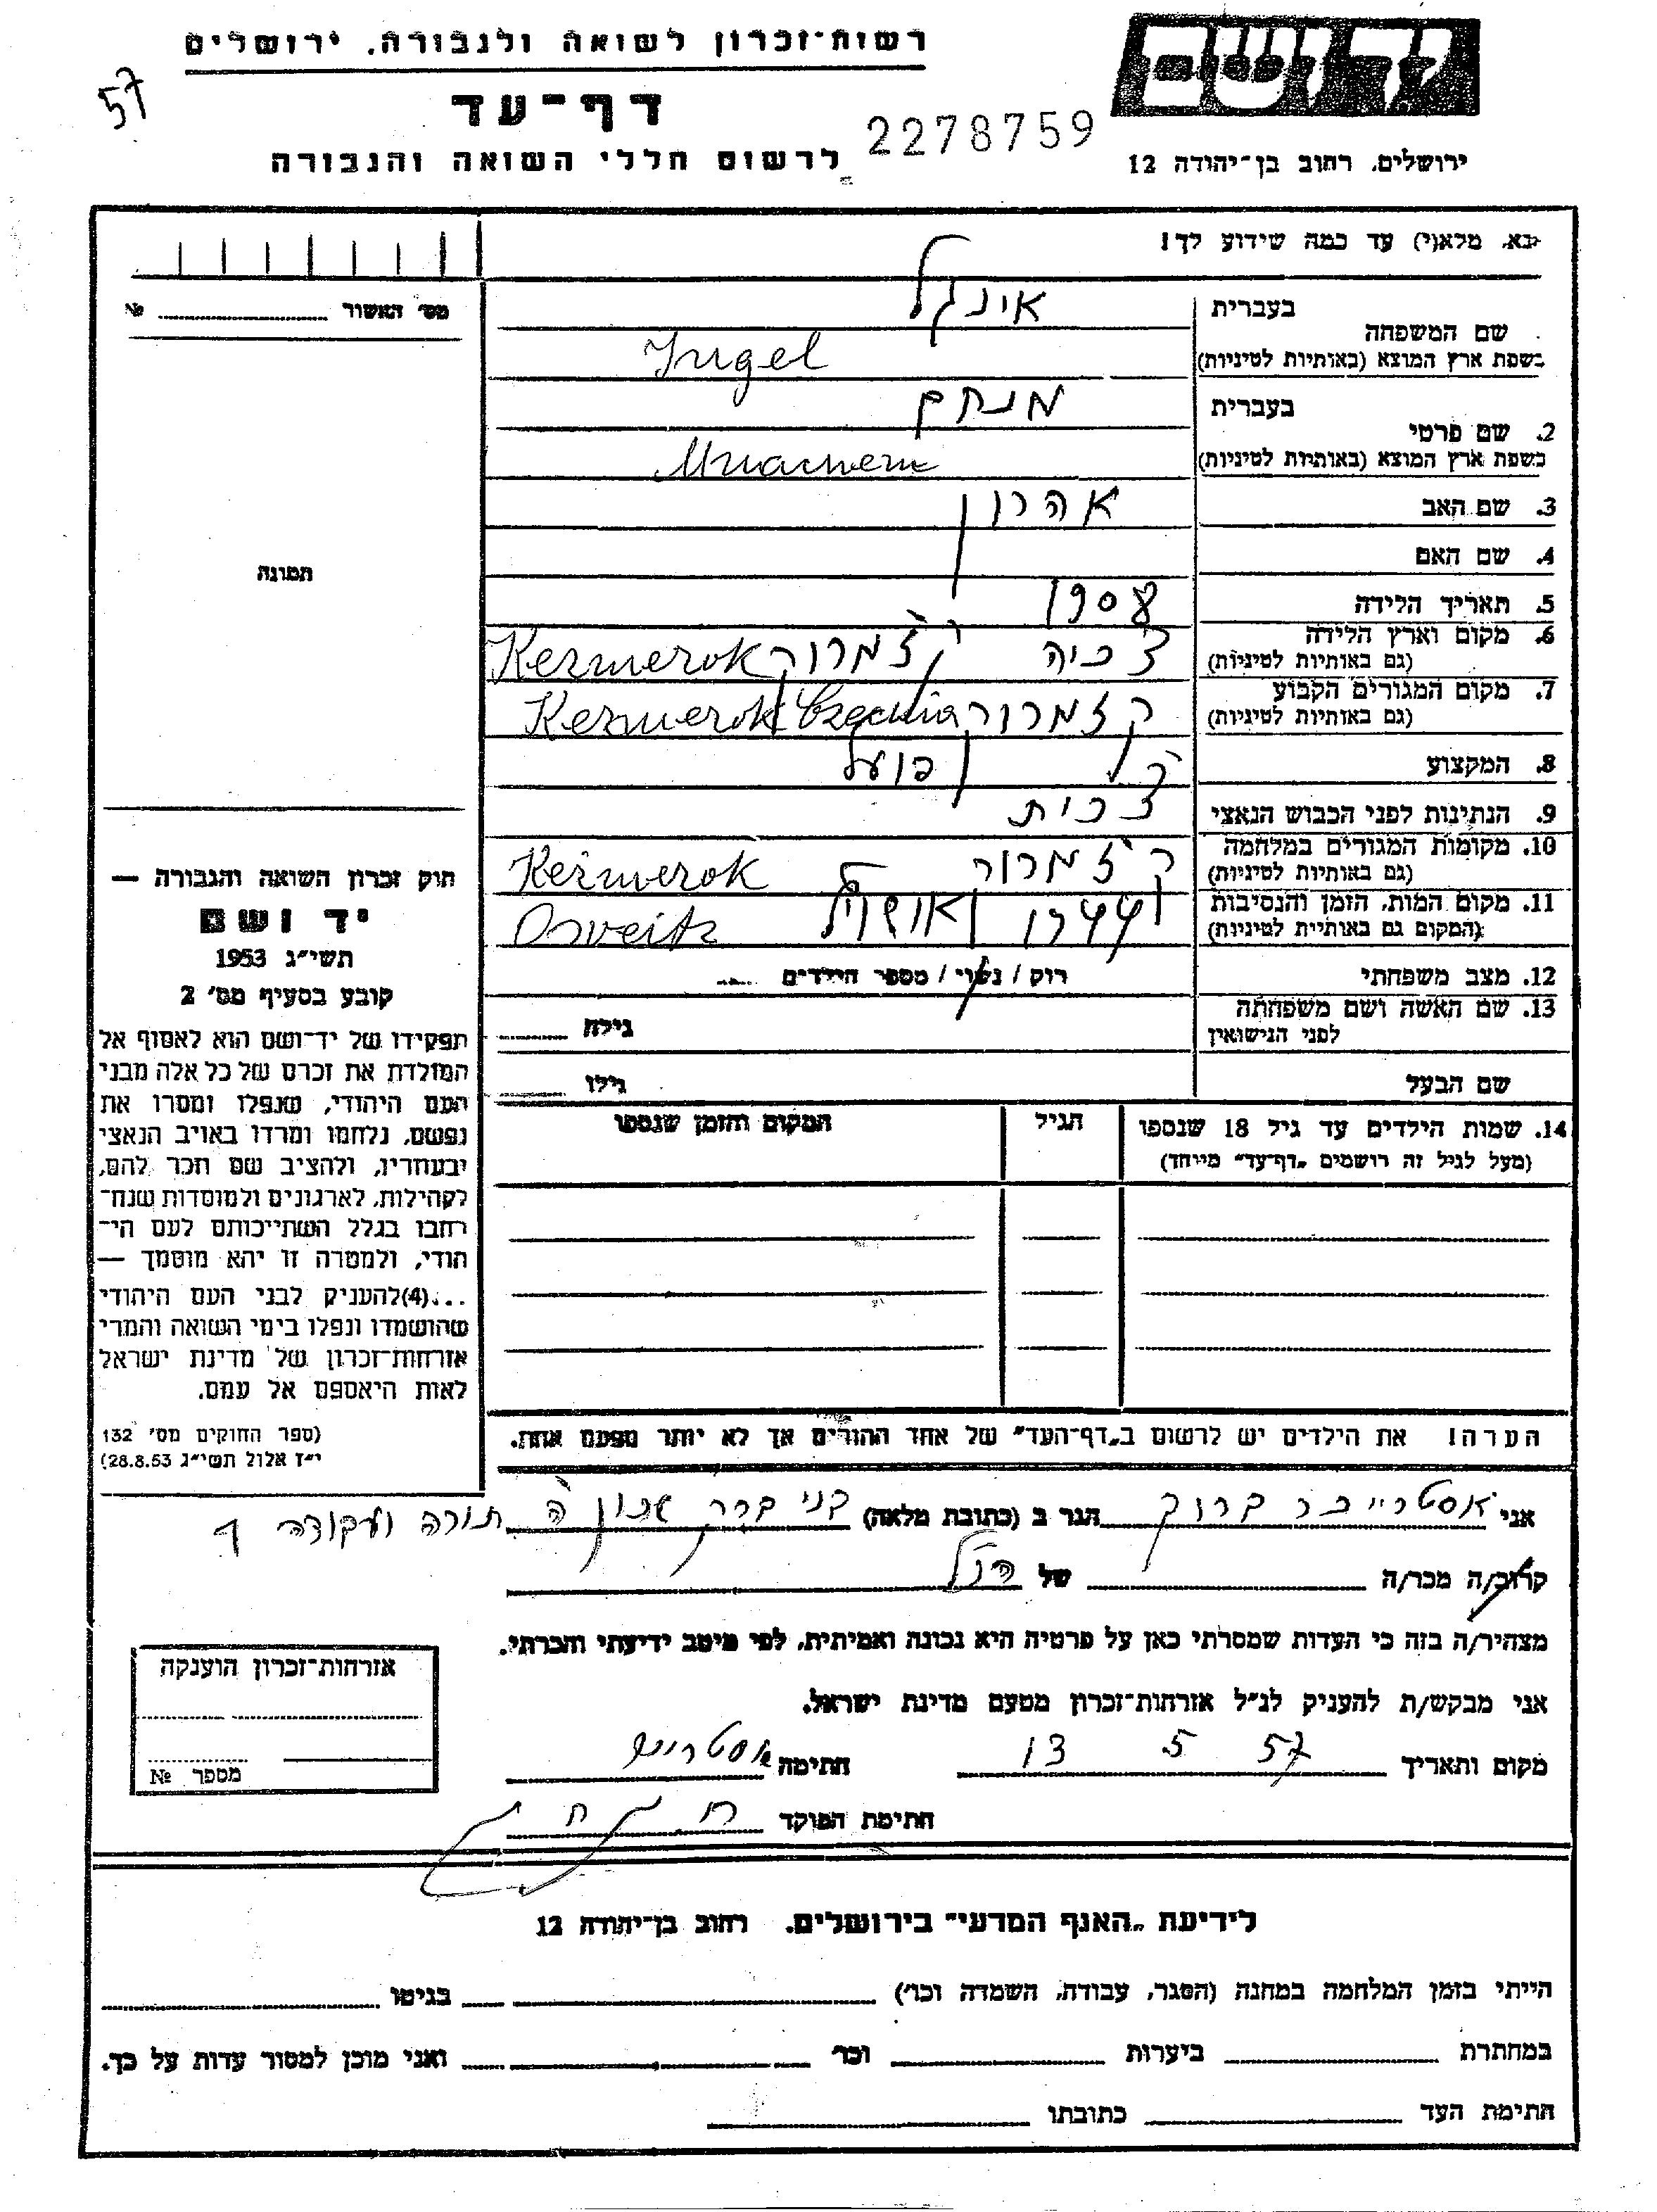 רשות־זכרון לשואה ולגבורה, ירושלים
יד ושם
57
דף־עד
2278759
לרשום חללי השואה והגבורה
ירושלים, רחוב בן־יהודה 12
נא, מלא(י) עד כמה שידוע לך!
מס׳ האשור № 
שם המשפחה
בעברית
אינגל
בשפת ארץ המוצא (באותיות לטיניות)
Ingel
2. שם פרטי
בעברית
מנחם
בשפת ארץ המוצא (באותיות לטיניות)
3. שם האב אהרון
4. שם האם
5. תאריך הלידה 1908
6. מקום וארץ הלידה צ׳כיה קז׳מרוק Kezmerok
(גם באותיות לטיניות)
7. מקום המגורים הקבוע קזמרוק Kezmerok Czechia
(גם באותיות לטיניות)
8. המקצוע פועל
9. הנתינות לפני הכבוש הנאצי צ׳כית
10. מקומות המגורים במלחמה קז׳מרוק Kežmerok
(גם באותיות לטיניות)
11. מקום המות, הזמן והנסיבות 1944 Osveitz
(המקום גם באותיות לטיניות)
12. מצב משפחתי רוק / נשוי / מספר הילדים
13. שם האשה ושם משפחתה
לפני הנישואין
גילה
שם הבעל גילו
14. שמות הילדים עד גיל 18 שנספו הגיל המקום והזמן שנספו
(מעל לגיל זה רושמים „דף־עד״ מייחד)
הערה! את הילדים יש לרשום ב„דף־העד״ של אחד ההורים אך לא יותר מפעם אחת.
תמונה
חוק זכרון השואה והגבורה —
יד ושם
תשי״ג 1953
קובע בסעיף מס׳ 2
תפקידו של יד־ושם הוא לאסוף אל
המולדת את זכרם של כל אלה מבני
העם היהודי, שנפלו ומסרו את
נפשם, נלחמו ומרדו באויב הנאצי
ובעוזריו, ולהציב שם וזכר להם,
לקהילות, לארגונים ולמוסדות שנח־
רחבו בגלל השתייכותם לעם הי־
הודי, ולמטרה זו יהא מוסמך —
...(4)להעניק לבני העם היהודי
שהושמדו ונפלו בימי השואה והמרי
אזרחות־זכרון של מדינת ישראל
לאות היאספם אל עמם.
(ספר החוקים מס׳ 132
י״ז אלול תשי״ג 28.8.53)
אני אסטרייכר ברוך הגר ב (כתובת מלאה) בני ברק שכון ה תורה ועבודה 7
קרוב/ה מכר/ה של הנ״ל
מצהיר/ה בזה כי העדות שמסרתי כאן על פרטיה היא נכונה ואמיתית, לפי מיטב ידיעתי והכרתי.
אני מבקש/ת להעניק לנ״ל אזרחות־זכרון מטעם מדינת ישראל.
מקום ותאריך 13 5 57 חתימה
חתימת הפוקד
אזרחות־זכרון הוענקה
מספר №
לידיעת „האגף המדעי״ בירושלים, רחוב בן־יהודה 12
הייתי בזמן המלחמה במחנה (הסגר, עבודה, השמדה וכו׳) בגיטו
במחתרת ביערות וכו׳ ואני מוכן למסור עדות על כך.
חתימת העד כתובתו